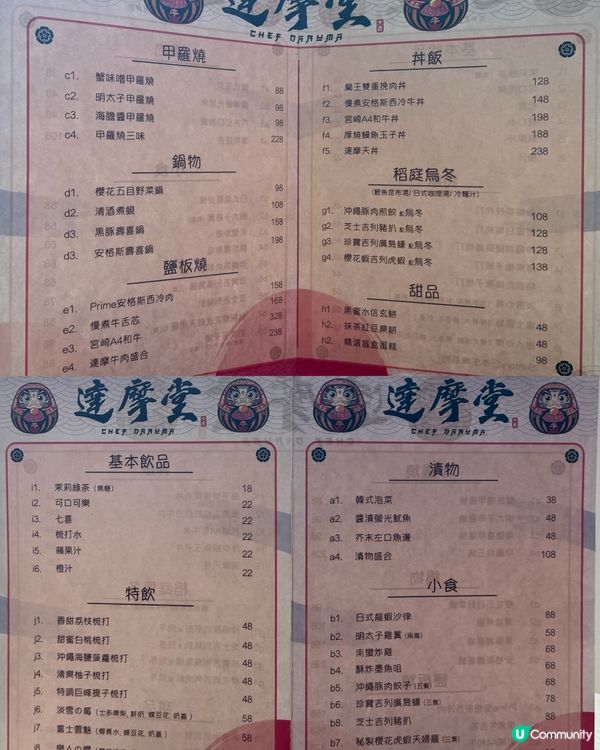 達摩堂
CHEF DARUMA
甲羅燒
c1. 蟹味噌甲羅燒 88
c2. 明太子甲羅燒 98
c3. 海膽醬甲羅燒 98
c4. 甲羅燒三味 228
鍋物
d1. 櫻花五目野菜鍋 98
d2. 清酒煮蜆 108
d3. 黑豚壽喜鍋 158
d3. 安格斯壽喜鍋 198
鹽板燒
e1. Prime安格斯西冷肉 158
e2. 慢煮牛舌芯 168
e3. 宮崎A4和牛 328
e4. 達摩牛肉盛合 238
丼飯
f1. 蘭王雙重挽肉丼 128
f2. 慢煮安格斯西冷牛丼 148
f3. 宮崎A4和牛丼 198
f4. 厚燒鰻魚玉子丼 188
f5. 達摩天丼 238
稻庭烏冬
(鰹魚昆布湯/ 日式咖喱湯/ 冷麵汁)
g1. 沖繩豚肉煎餃 配烏冬 108
g2. 芝士吉列豬扒 配烏冬 128
g3. 珍寶吉列廣島蠔 配烏冬 128
g4. 櫻花蝦吉列虎蝦 配烏冬 138
甜品
h1. 黑蜜水信玄餅 48
h2. 抹茶紅豆蕨餅 48
h2. 精選盲盒蛋糕 98
達摩堂
CHEF DARUMA
基本飲品
i1. 茉莉綠茶 (無糖) 18
i2. 可口可樂 22
i3. 七喜 22
i4. 梳打水 22
i5. 蘋果汁 22
i6. 橙汁 22
特飲
j1. 香甜荔枝梳打 48
j2. 甜蜜白桃梳打 48
j3. 沖繩海鹽菠蘿梳打 48
j4. 清爽柚子梳打 48
j5. 特調巨峰提子梳打 48
j6. 淡雪の莓 (士多啤梨, 鮮奶, 蝶豆花, 奶蓋) 58
j7. 富士雲魅 (椰青水, 蝶豆花, 奶蓋) 58
達摩堂
CHEF DARUMA
漬物
a1. 韓式泡菜 38
a2. 醬漬螢光魷魚 48
a3. 芥末左口魚邊 48
a4. 漬物盛合 108
小食
b1. 日式龍蝦沙律 88
b2. 明太子雞翼 (兩隻) 58
b3. 南蠻炸雞 58
b4. 酥炸墨魚咀 68
b5. 沖繩豚肉餃子 (五隻) 68
b6. 珍寶吉列廣島蠔 (三隻) 78
b8. 芝士吉列豬扒 88
b7. 秘製櫻花虎蝦天婦羅 (三隻) 88